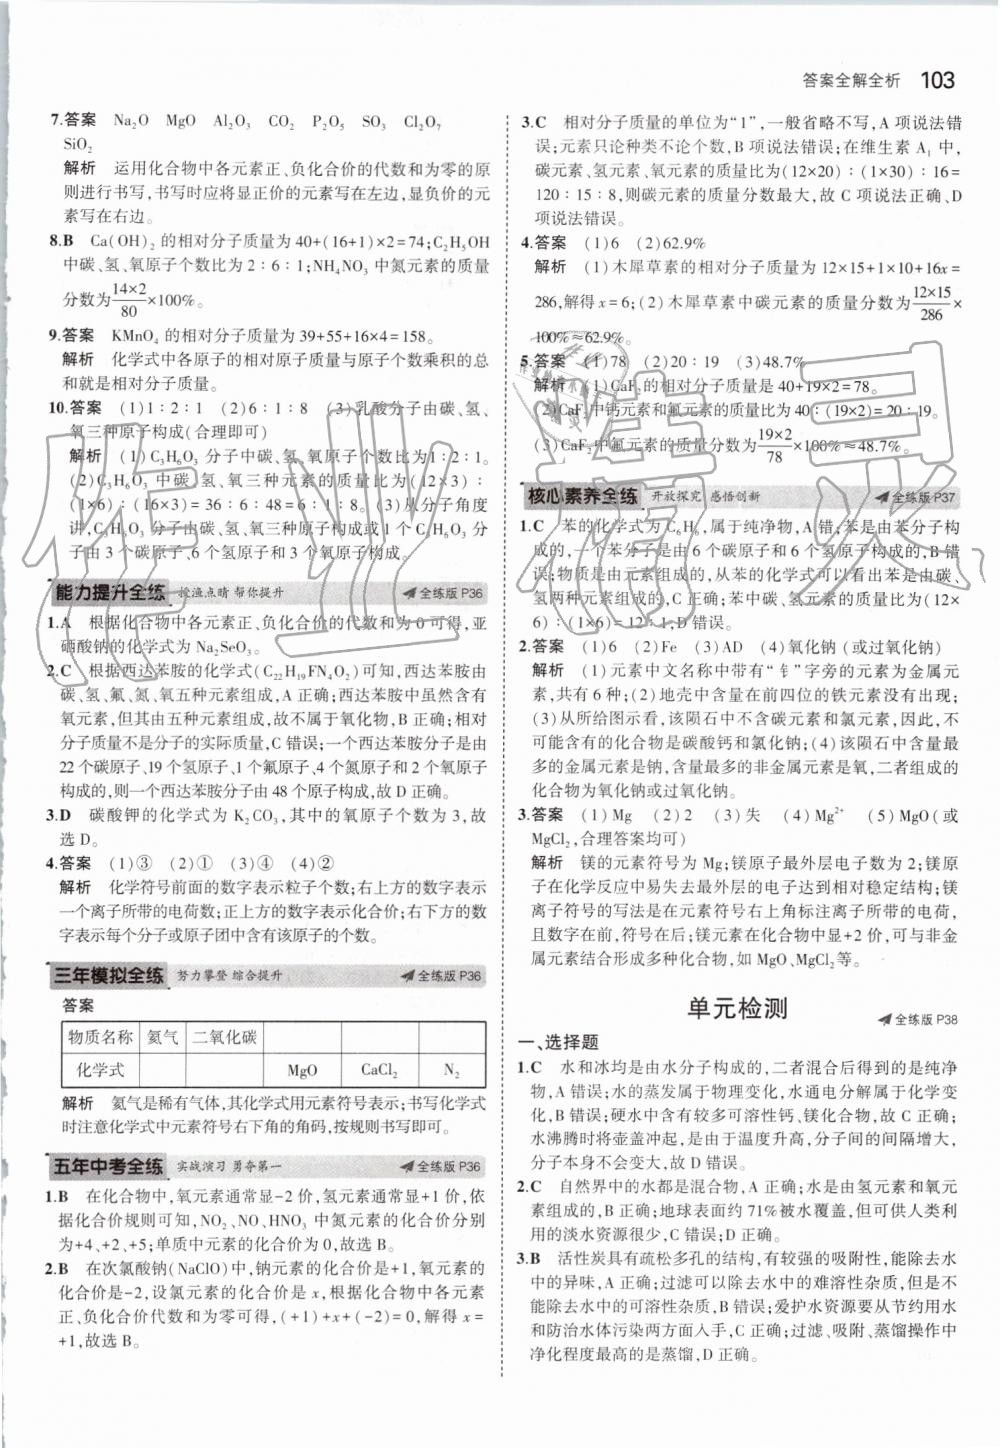 答案全解全析 103
7.答案 Na₂O MgO Al₂O₃ CO₂ P₂O₅ SO₃ Cl₂O₇
SiO₂
解析 运用化合物中各元素正、负化合价的代数和为零的原
则进行书写,书写时应将显正价的元素写在左边,显负价的元
素写在右边。
8.B Ca(OH)₂的相对分子质量为40+(16+1)×2=74;C₂H₅OH
中碳、氢、氧原子个数比为2∶6∶1;NH₄NO₃中氮元素的质量
分数为14×2/80×100%。
9.答案 KMnO₄的相对分子质量为39+55+16×4=158。
解析 化学式中各原子的相对原子质量与原子个数乘积的总
和就是相对分子质量。
10.答案 (1)1∶2∶1 (2)6∶1∶8 (3)乳酸分子由碳、氢、
氧三种原子构成(合理即可)
解析 (1)C₃H₆O₃分子中碳、氢、氧原子个数比为1∶2∶1。
(2)C₃H₆O₃中碳、氢、氧三种元素的质量比为(12×3)∶
(1×6)∶(16×3)=36∶6∶48=6∶1∶8。(3)从分子角度
讲,C₃H₆O₃分子由碳、氢、氧三种原子构成或1个C₃H₆O₃分
子由3个碳原子、6个氢原子和3个氧原子构成。
能力提升全练 拉渔点睛 帮你提升 全练版P36
1.A 根据化合物中各元素正、负化合价的代数和为0可得,亚
硒酸钠的化学式为Na₂SeO₃。
2.C 根据西达苯胺的化学式(C₂₂H₁₉FN₄O₂)可知,西达苯胺由
碳、氢、氟、氮、氧五种元素组成,A正确;西达苯胺中虽然含有
氧元素,但其由五种元素组成,故不属于氧化物,B正确;相对
分子质量不是分子的实际质量,C错误;一个西达苯胺分子是由
22个碳原子、19个氢原子、1个氟原子、4个氮原子和2个氧原子
构成的,则一个西达苯胺分子由48个原子构成,故D正确。
3.D 碳酸钾的化学式为K₂CO₃,其中的氧原子个数为3,故
选D。
4.答案 (1)③ (2)① (3)④ (4)②
解析 化学符号前面的数字表示粒子个数;右上方的数字表示
一个离子所带的电荷数;正上方的数字表示化合价;右下方的数
字表示每个分子或原子团中含有该原子的个数。
三年模拟全练 努力攀登 综合提升 全练版P36
答案
物质名称 氦气 二氧化碳
化学式 MgO CaCl₂ N₂
解析 氦气是稀有气体,其化学式用元素符号表示;书写化学式
时注意化学式中元素符号右下角的角码,按规则书写即可。
五年中考全练 实战演习 勇夺第一 全练版P36
1.B 在化合物中,氧元素通常显-2价,氢元素通常显+1价,依
据化合价规则可知,NO₂、NO、HNO₃中氮元素的化合价分别
为+4、+2、+5;单质中元素的化合价为0,故选B。
2.B 在次氯酸钠(NaClO)中,钠元素的化合价是+1,氧元素的
化合价是-2,设氯元素的化合价是x,根据化合物中各元素
正、负化合价代数和为零可得,(+1)+x+(-2)=0,解得x=
+1,故选B。
3.C 相对分子质量的单位为“1”,一般省略不写,A项说法错
误;元素只论种类不论个数,B项说法错误;在维生素A₁中,
碳元素、氢元素、氧元素的质量比为(12×20)∶(1×30)∶16=
120∶15∶8,则碳元素的质量分数最大,故C项说法正确、D
项说法错误。
4.答案 (1)6 (2)62.9%
解析 (1)木犀草素的相对分子质量为12×15+1×10+16x=
286,解得x=6;(2)木犀草素中碳元素的质量分数为12×15/286×
100%≈62.9%。
5.答案 (1)78 (2)20∶19 (3)48.7%
解析 (1)CaF₂的相对分子质量是40+19×2=78。
(2)CaF₂中钙元素和氟元素的质量比为40∶(19×2)=20∶19。
(3)CaF₂中氟元素的质量分数为19×2/78×100%≈48.7%。
核心素养全练 开放探究 感悟创新 全练版P37
1.C 苯的化学式为C₆H₆,属于纯净物,A错;苯是由苯分子构
成的,一个苯分子是由6个碳原子和6个氢原子构成的,B错
误;物质是由元素组成的,从苯的化学式可以看出苯是由碳、
氢两种元素组成的,C正确;苯中碳、氢元素的质量比为(12×
6)∶(1×6)=12∶1,D错误。
2.答案 (1)6 (2)Fe (3)AD (4)氧化钠(或过氧化钠)
解析 (1)元素中文名称中带有“钅”字旁的元素为金属元
素,共有6种;(2)地壳中含量在前四位的铁元素没有出现;
(3)从所给图示看,该陨石中不含碳元素和氯元素,因此,不
可能含有的化合物是碳酸钙和氯化钠;(4)该陨石中含量最
多的金属元素是钠,含量最多的非金属元素是氧,二者组成的
化合物为氧化钠或过氧化钠。
3.答案 (1)Mg (2)2 (3)失 (4)Mg²⁺ (5)MgO(或
MgCl₂,合理答案均可)
解析 镁的元素符号为Mg;镁原子最外层电子数为2;镁原
子在化学反应中易失去最外层的电子达到相对稳定结构;镁
离子符号的写法是在元素符号右上角标注离子所带的电荷,
且数字在前,符号在后;镁元素在化合物中显+2价,可与非金
属元素结合形成多种化合物,如MgO、MgCl₂等。
单元检测 全练版P38
一、选择题
1.C 水和冰均是由水分子构成的,二者混合后得到的是纯净
物,A错误;水的蒸发属于物理变化,水通电分解属于化学变
化,B错误;硬水中含有较多可溶性钙、镁化合物,故C正确;
水沸腾时将壶盖冲起,是由于温度升高,分子间的间隔增大,
分子本身不会变大,故D错误。
2.C 自然界中的水都是混合物,A正确;水是由氢元素和氧元
素组成的,B正确;地球表面约71%被水覆盖,但可供人类利
用的淡水资源很少,C错误;D正确。
3.B 活性炭具有疏松多孔的结构,有较强的吸附性,能除去水
中的异味,A正确;过滤可以除去水中的难溶性杂质,但是不
能除去水中的可溶性杂质,B错误;爱护水资源要从节约用水
和防治水体污染两方面入手,C正确;过滤、吸附、蒸馏操作中
净化程度最高的是蒸馏,D正确。